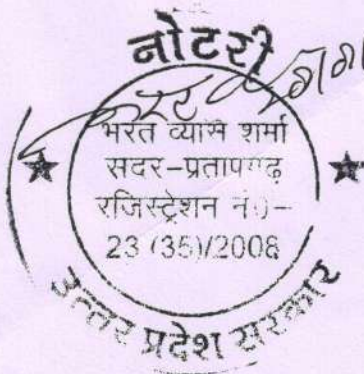 नोटरी
भरत व्यास शर्मा
सदर-प्रतापगढ़
रजिस्ट्रेशन नं०-
23 (35)/2008
उत्तर प्रदेश सरकार